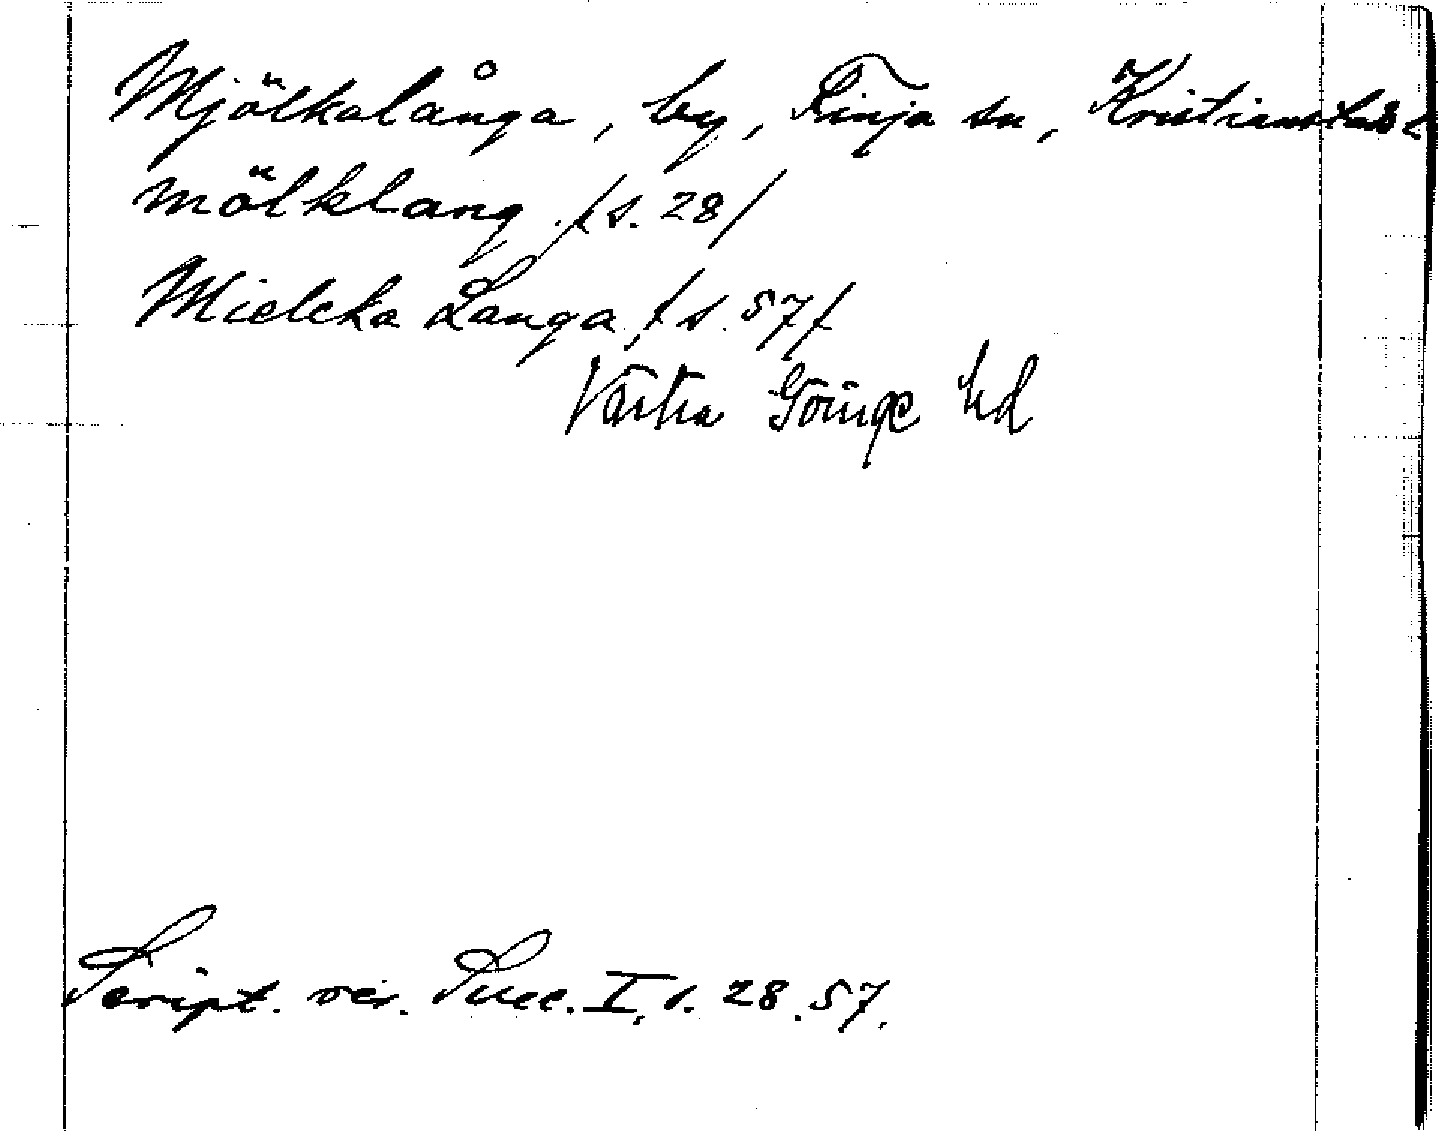 Mjölkalånga, by, Finja sn, Kristianstads l
mölklang /s. 28/
Mielcka Langa /s. 57/
Västra Göinge hd
Script. rer. Suec. I, s. 28. 57.